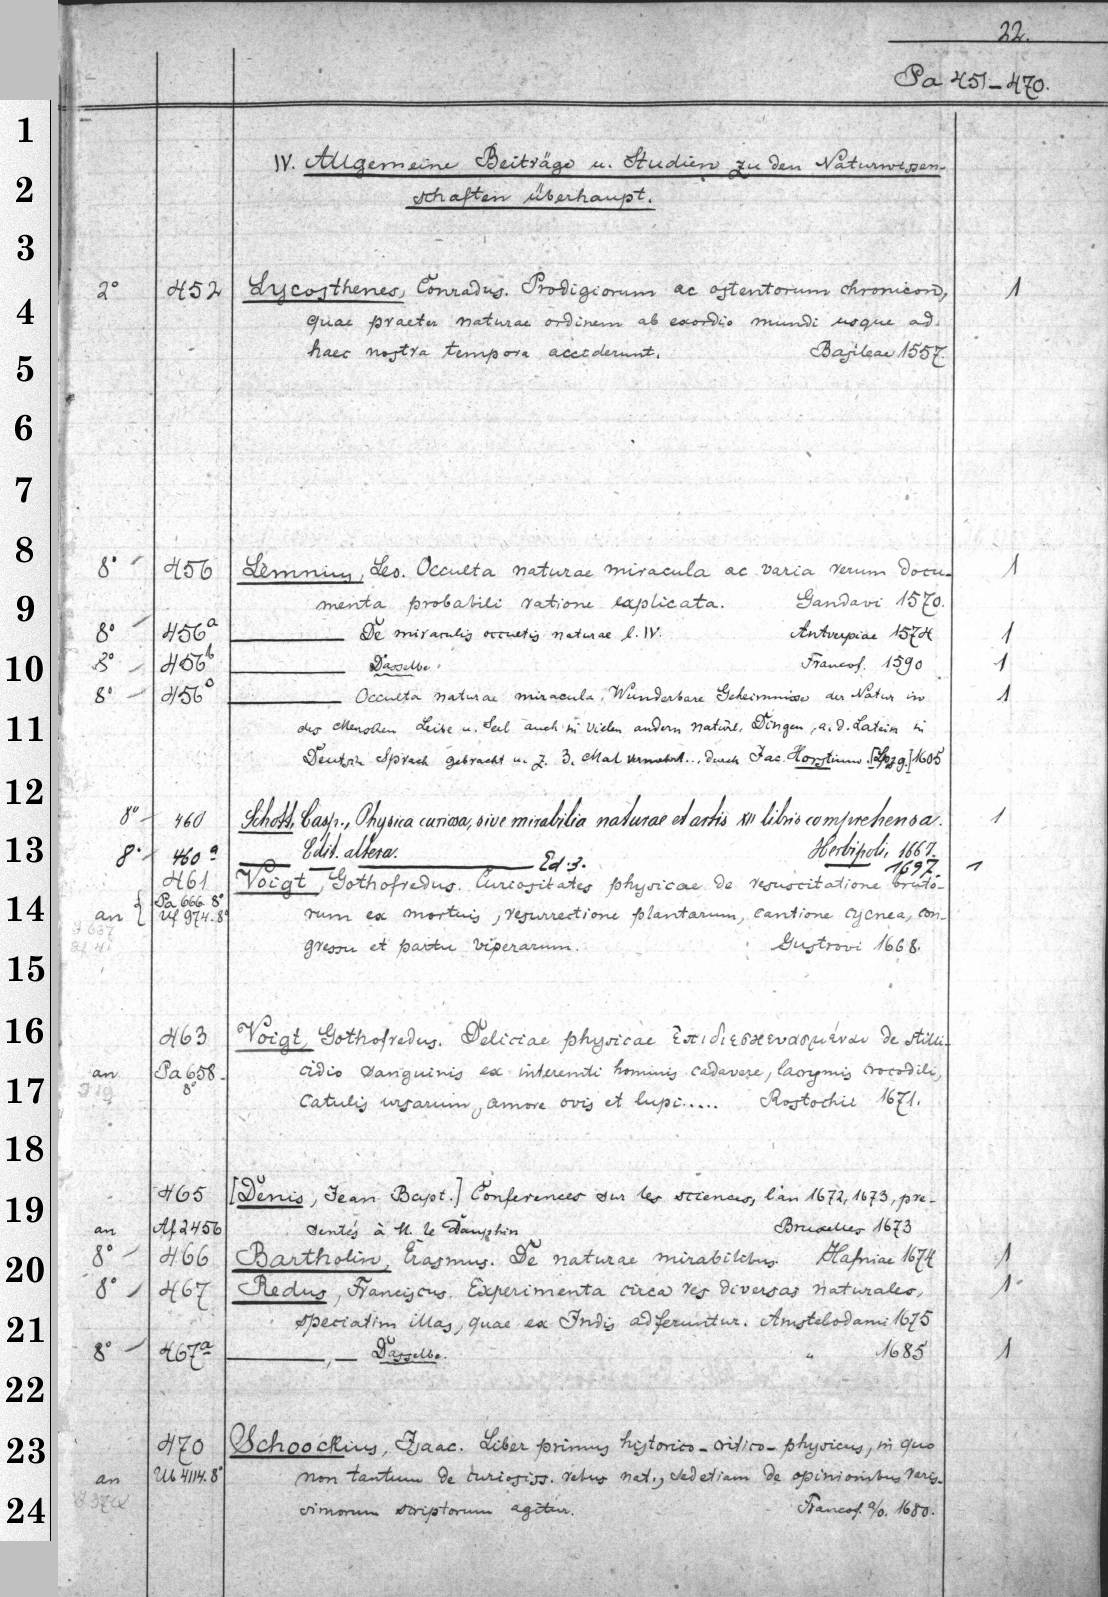 22.
Pa 451-470.
1
IV. Allgemeine Beiträge u. Studien zu den Naturwissen-
2
schaften überhaupt.
3
2° 452 Lycosthenes, Conradus. Prodigiorum ac ostentorum chronicon, 1
4
quae praeter naturae ordinem ab exordio mundi usque ad
haec nostra tempora acciderunt. Basileae 1557.
5
6
7
8
8° 456 Lemnius, Leo. Occulta naturae miracula ac varia rerum docu- 1
9
menta probabili ratione explicata. Gandavi 1570.
8° 456a De miraculis occultis naturae l. IV. Antverpiae 1574 1
10
8° 456b Dasselbe. Francof. 1590 1
8° 456c Occulta naturae miracula. Wunderbare Geheimnisse der Natur in 1
11
des Menschen Leibe u. Seel auch in vielen andern natürl. Dingen, a. d. Latein in
Deutsch Sprach gebracht u. z. 3. Mal vermehrt... durch Jac. Horstium. [Lpzg.] 1605
12
8° 460 Schott, Casp., Physica curiosa, sive mirabilia naturae et artis XII libris comprehensa. 1
13
Edit. altera. Herbipoli, 1667.
8° 460a Ed. 3. 1697. 1
461 Voigt, Gothofredus. Curiositates physicae de resuscitatione bruto-
14
an { Pa 666 8°
Uf 974. 8° rum ex mortuis, resurrectione plantarum, cantione cycnea, con-
gressu et partu viperarum. Gustrovi 1668.
15
16
463 Voigt, Gothofredus. Deliciae physicae Επιδιεσκευασμέναι de stilli-
an Pa 658. 8° cidio sanguinis ex interemti hominis cadavere, lacrymis crocodili,
17
catulis ursarum, amore ovis et lupi..... Rostochii 1671.
18
465 [Denis, Jean Bapt.] Conferences sur les sciences, l'an 1672, 1673, pre-
19
an Af 2456 sentés à M. le Dauphin Bruxelles 1673
8° 466 Bartholin, Erasmus. De naturae mirabilibus. Hafniae 1674 1
20
8° 467 Redus, Franciscus. Experimenta circa res diversas naturales, 1
speciatim illas, quae ex Indis adferuntur. Amstelodami 1675
21
8° 467a , Dasselbe. " 1685 1
22
470 Schoockius, Isaac. Liber primus historico-critico-physicus, in quo
23
an Ub 4114. 8° non tantum de curiosiss. rebus nat., sed etiam de opinionibus varis-
24
simorum scriptorum agitur. Francof. a/O. 1680.